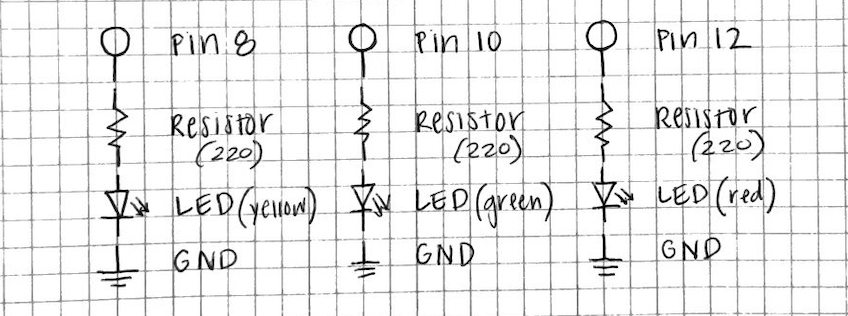 Pin 8
Resistor
(220)
LED (yellow)
GND
Pin 10
Resistor
(220)
LED (green)
GND
Pin 12
Resistor
(220)
LED (red)
GND